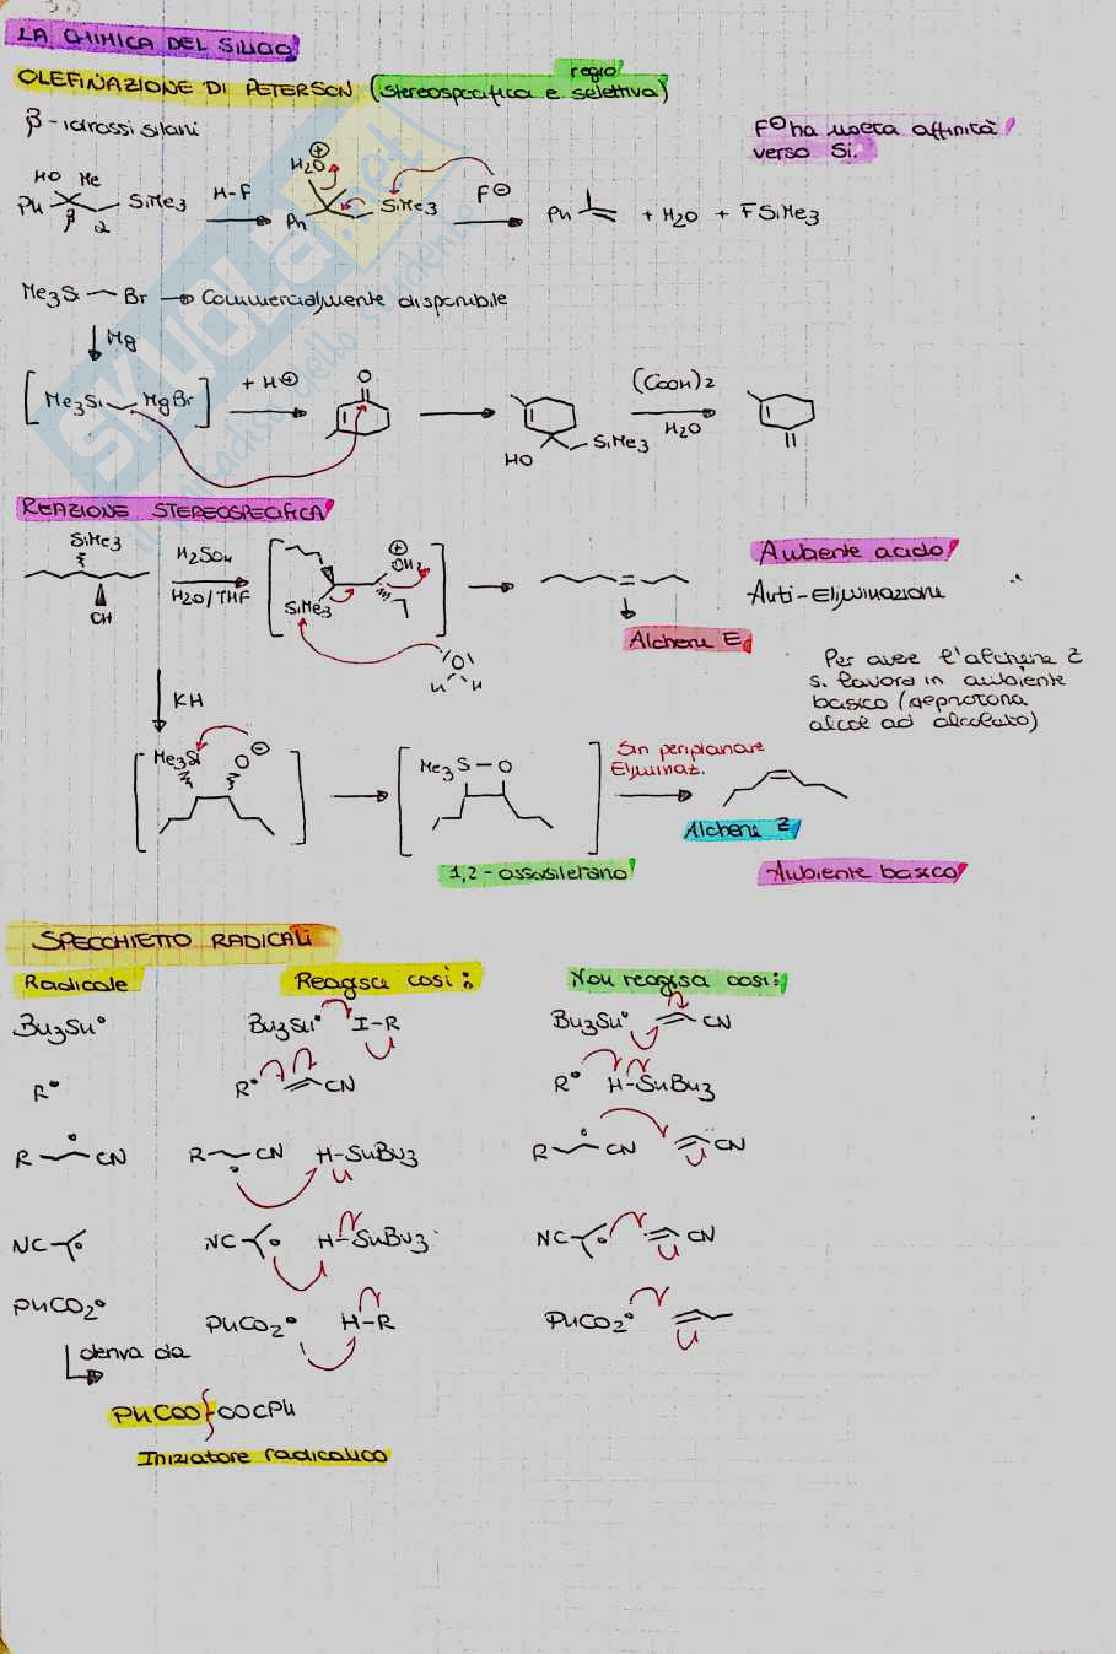 LA CHIMICA DEL SILICIO
OLEFINAZIONE DI PETERSON (stereospecifica e regio selettiva)
β-idrossi silani
F⊖ ha molta affinità verso Si.
HO Me
Ph β 2 SiMe3
H-F
H2O⊕
Ph SiMe3
F⊖
Ph + H2O + FSiMe3
Me3Si Br → Commercialmente disponibile
Mg
[Me3Si MgBr]
+ H⊕
O
HO SiMe3
(COOH)2
H2O
REAZIONE STEREOSPECIFICA
SiMe3
OH
H2SO4
H2O/THF
SiMe3
⊕
OH2
H O H
Alcheni E
Ambiente acido
Anti-Eliminazioni
Per avere l'alchene Z
si lavora in ambiente
basico (deprotona
alcol ad alcolato)
KH
Me3Si O⊖
Me3Si-O
Sin periplanare
Eliminaz.
Alcheni Z
1,2-ossasiletano
Ambiente basico
SPECCHIETTO RADICALI
Radicale Reagisce così: Non reagisce così:
Bu3Sn• Bu3Sn• I-R Bu3Sn• CN
R• R• CN R• H-SnBu3
R CN R CN H-SnBu3 R CN CN
NC NC H-SnBu3 NC CN
PhCO2• PhCO2• H-R PhCO2•
deriva da
PhCOO OOCPh
Iniziatore radicalico
SKUOLA.net